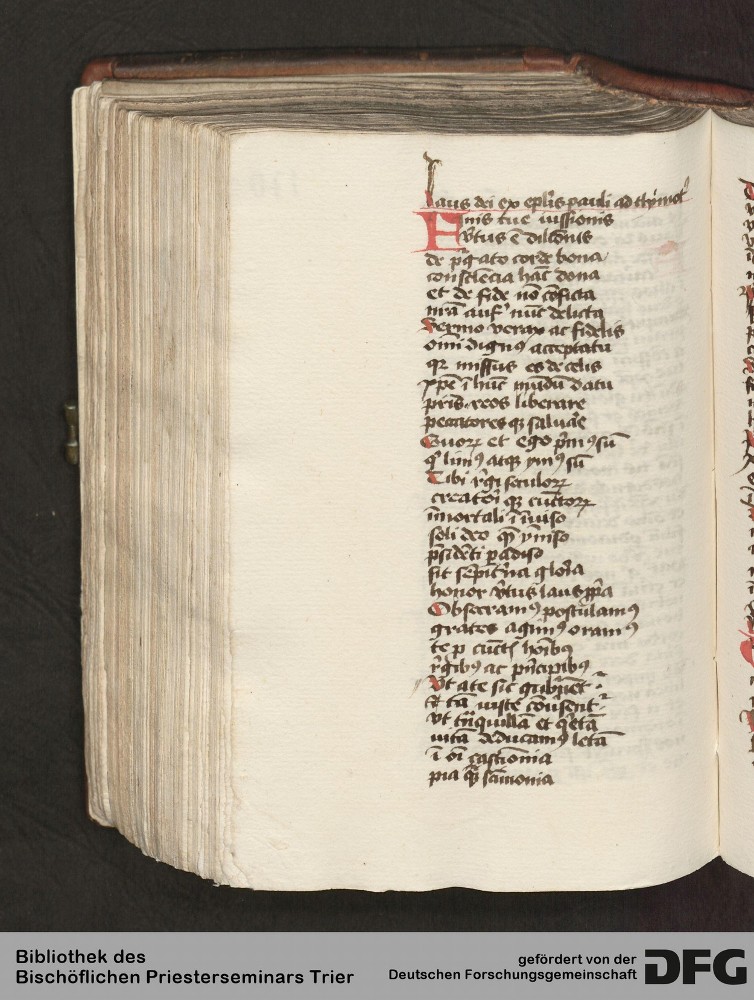 Laus dei ex eplis pauli ad thymot
Finis tue iussionis
v̾tus ē dilc̄onis
de p̾gato corde bona
consciēcia hāc dona
et de fide nō cōficta
nr̄a auf̾ nūc delicta
Sermo verax ac fidelis
om̄i dignꝰ acceptatu
qꝛ missus es de celis
xpē ī hūc mūdū datu
pris reos liberare
peccatores qꝫ saluāe
Quoꝝ et ego p̾mꝰ sū
atqꝫ ymꝰ sū
Tibi r̾gi seculoꝝ
creatori qꝫ cūctoꝝ
īmortali ī īuiso
soli deo qꝫ ymiso
p̄sidēti padiso
sit sēpit̾na gloīa
honor v̾tus laus ꝓpa
Obsecramꝰ postulamꝰ
grates agimꝰ oramꝰ
te ꝓ cūctis hoībꝰ
r̾gibꝰ ac p̾ncipibꝰ
Vt a te sic gub̾nēt
tā iuste cōuersent
vt t̾nquillā et q̾etā
uitā deducamꝰ letā
ī oī castīonia
pia qꝫ sc̄imonia
Bibliothek des
Bischöflichen Priesterseminars Trier
gefördert von der
Deutschen Forschungsgemeinschaft
DFG